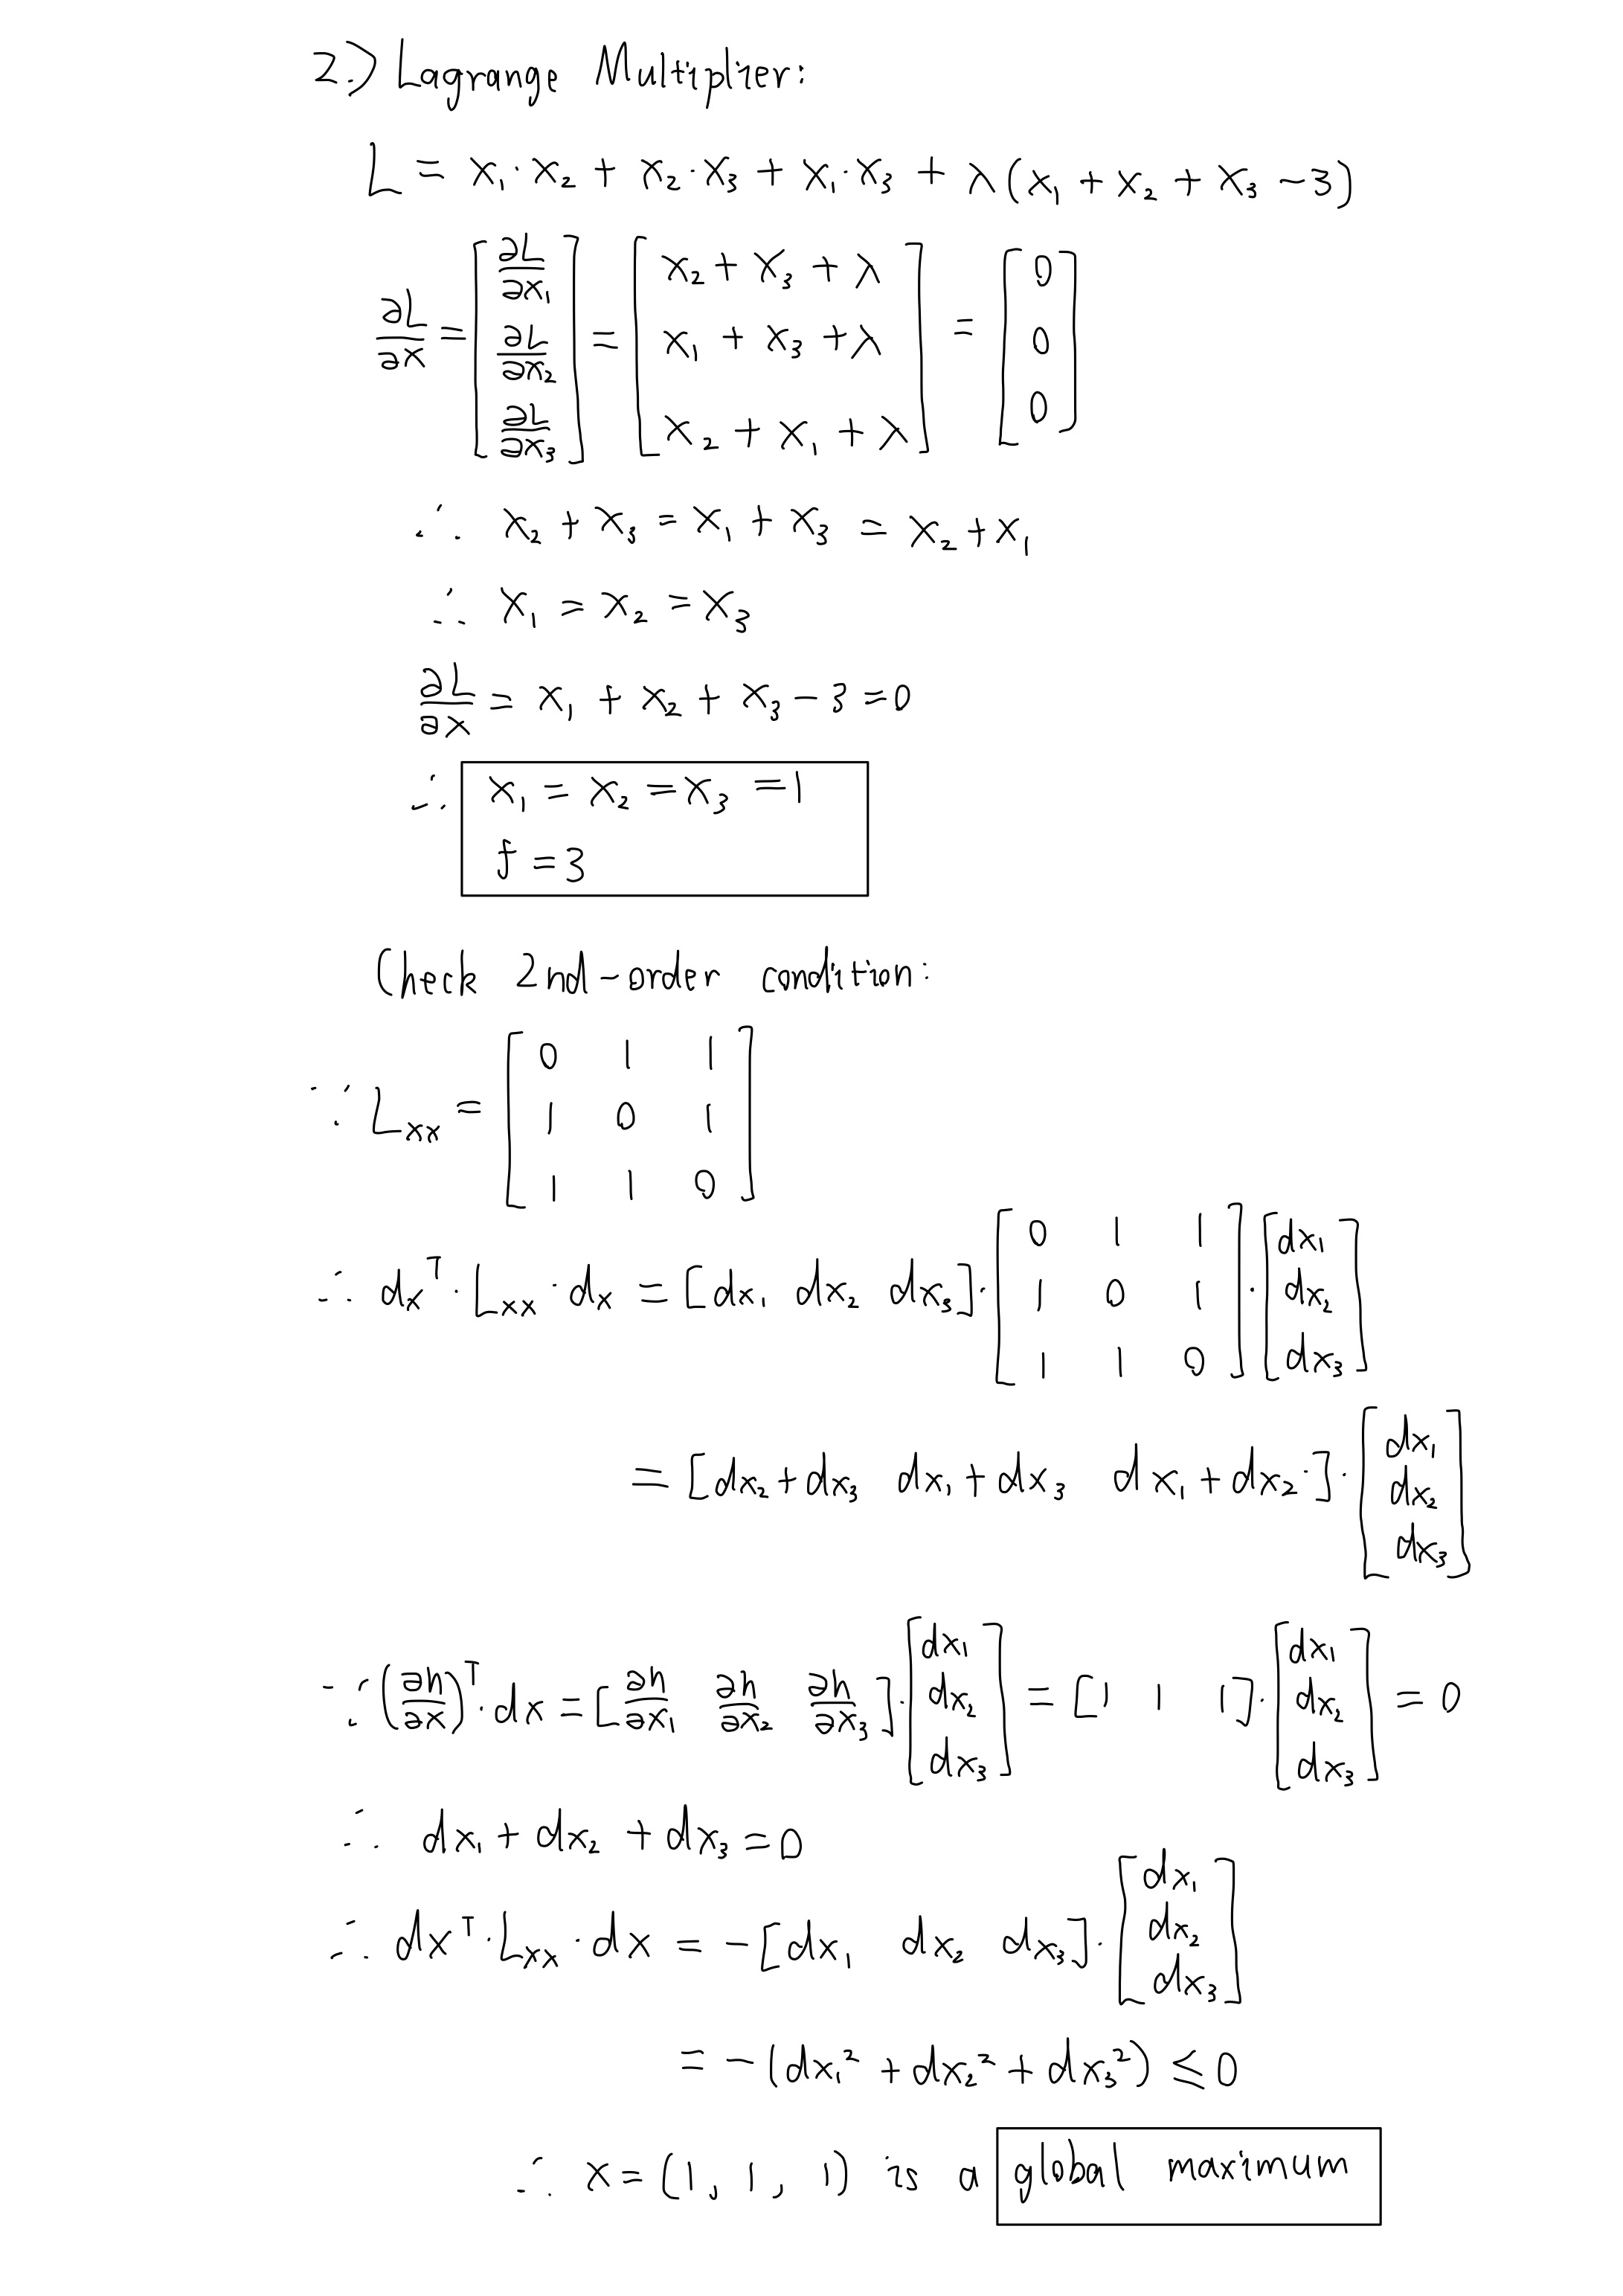 2.) Lagrange Multiplier:
L = x₁·x₂ + x₂·x₃ + x₁·x₃ + λ(x₁ + x₂ + x₃ − 3)
∂L/∂x = [∂L/∂x₁ ; ∂L/∂x₂ ; ∂L/∂x₃] = [x₂ + x₃ + λ ; x₁ + x₃ + λ ; x₂ + x₁ + λ] = [0 ; 0 ; 0]
∴ x₂ + x₃ = x₁ + x₃ = x₂ + x₁
∴ x₁ = x₂ = x₃
∂L/∂x = x₁ + x₂ + x₃ − 3 = 0
∴ x₁ = x₂ = x₃ = 1
f = 3
Check 2nd-order condition:
∵ Lxx = [0 1 1 ; 1 0 1 ; 1 1 0]
∴ dxᵀ · Lxx · dx = [dx₁ dx₂ dx₃] · [0 1 1 ; 1 0 1 ; 1 1 0] · [dx₁ ; dx₂ ; dx₃]
= [dx₂ + dx₃ dx₁ + dx₃ dx₁ + dx₂·] · [dx₁ ; dx₂ ; dx₃]
∵ (∂h/∂x)ᵀ · dx = [∂h/∂x₁ ∂h/∂x₂ ∂h/∂x₃] · [dx₁ ; dx₂ ; dx₃] = [1 1 1] · [dx₁ ; dx₂ ; dx₃] = 0
∴ dx₁ + dx₂ + dx₃ = 0
∴ dxᵀ · Lxx · dx = −[dx₁ dx₂ dx₃] · [dx₁ ; dx₂ ; dx₃]
= −(dx₁² + dx₂² + dx₃²) ≤ 0
∴ x = (1, 1, 1) is a global maximum